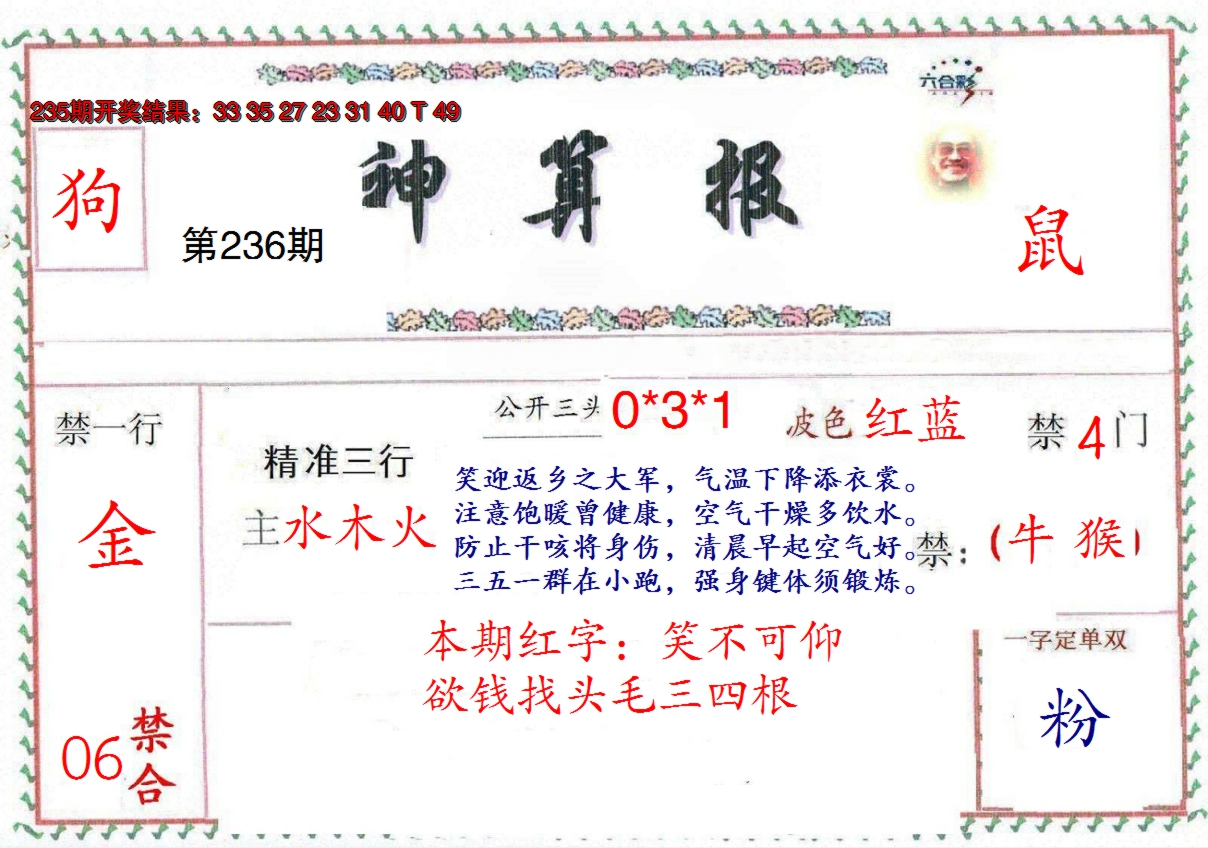 六合彩
235期开奖结果：33 35 27 23 31 40 T 49
狗
神算报
第236期
鼠
禁一行
金
06
禁合
精准三行
主水木火
公开三头 0*3*1
波色 红蓝
禁 4 门
笑迎返乡之大军，气温下降添衣裳。
注意饱暖曾健康，空气干燥多饮水。
防止干咳将身伤，清晨早起空气好。
三五一群在小跑，强身键体须锻炼。
禁：(牛 猴)
本期红字：笑不可仰
欲钱找头毛三四根
一字定单双
粉